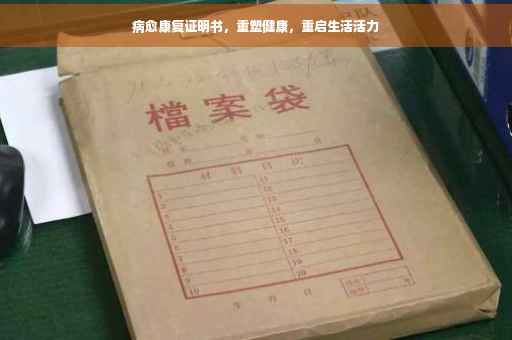 病愈康复证明书，重塑健康，重启生活活力
檔案袋
材料目次
1 11
2 12
3 13
4 14
5 15
6 16
7 17
8 18
9 19
10 20
年 月 日